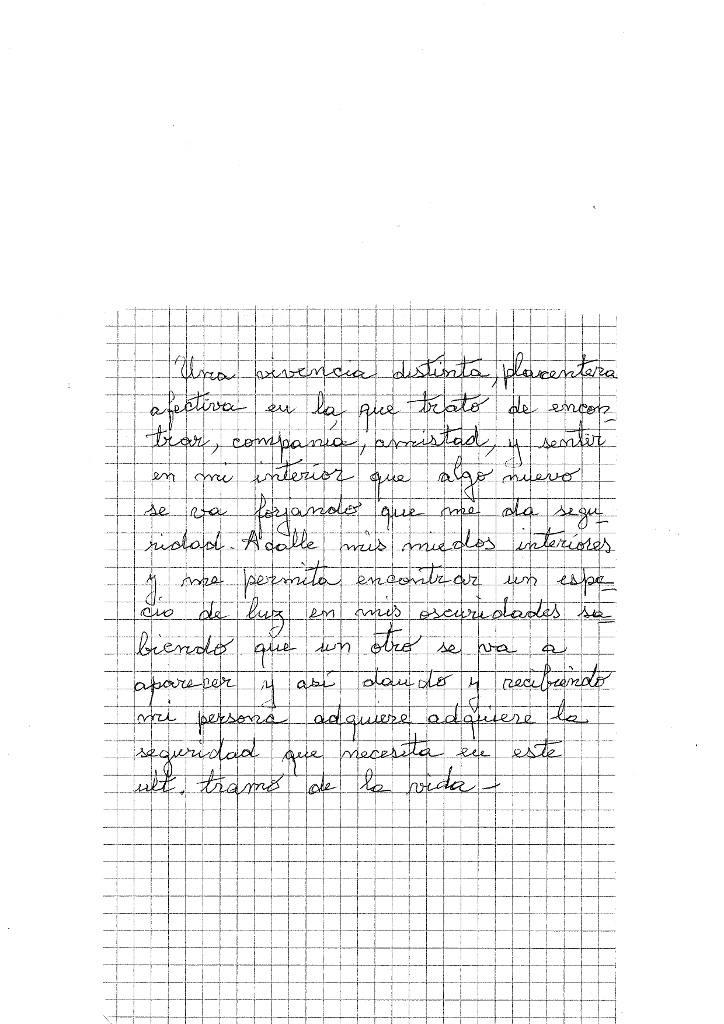 Una vivencia distinta, placentera
afectiva en la que trato de encon_
trar, compania, amistad, y sentir
en mi interior que algo nuevo
se va forjando que me da segu_
ridad. Acalle mis miedos interiores
y me permita encontrar un espa_
cio de luz en mis oscuridades sa_
biendo que un otro se va a
aparecer y así dando y recibiendo
mi persona adquiere adquiere la
seguridad que necesita en este
ult. tramo de la vida -